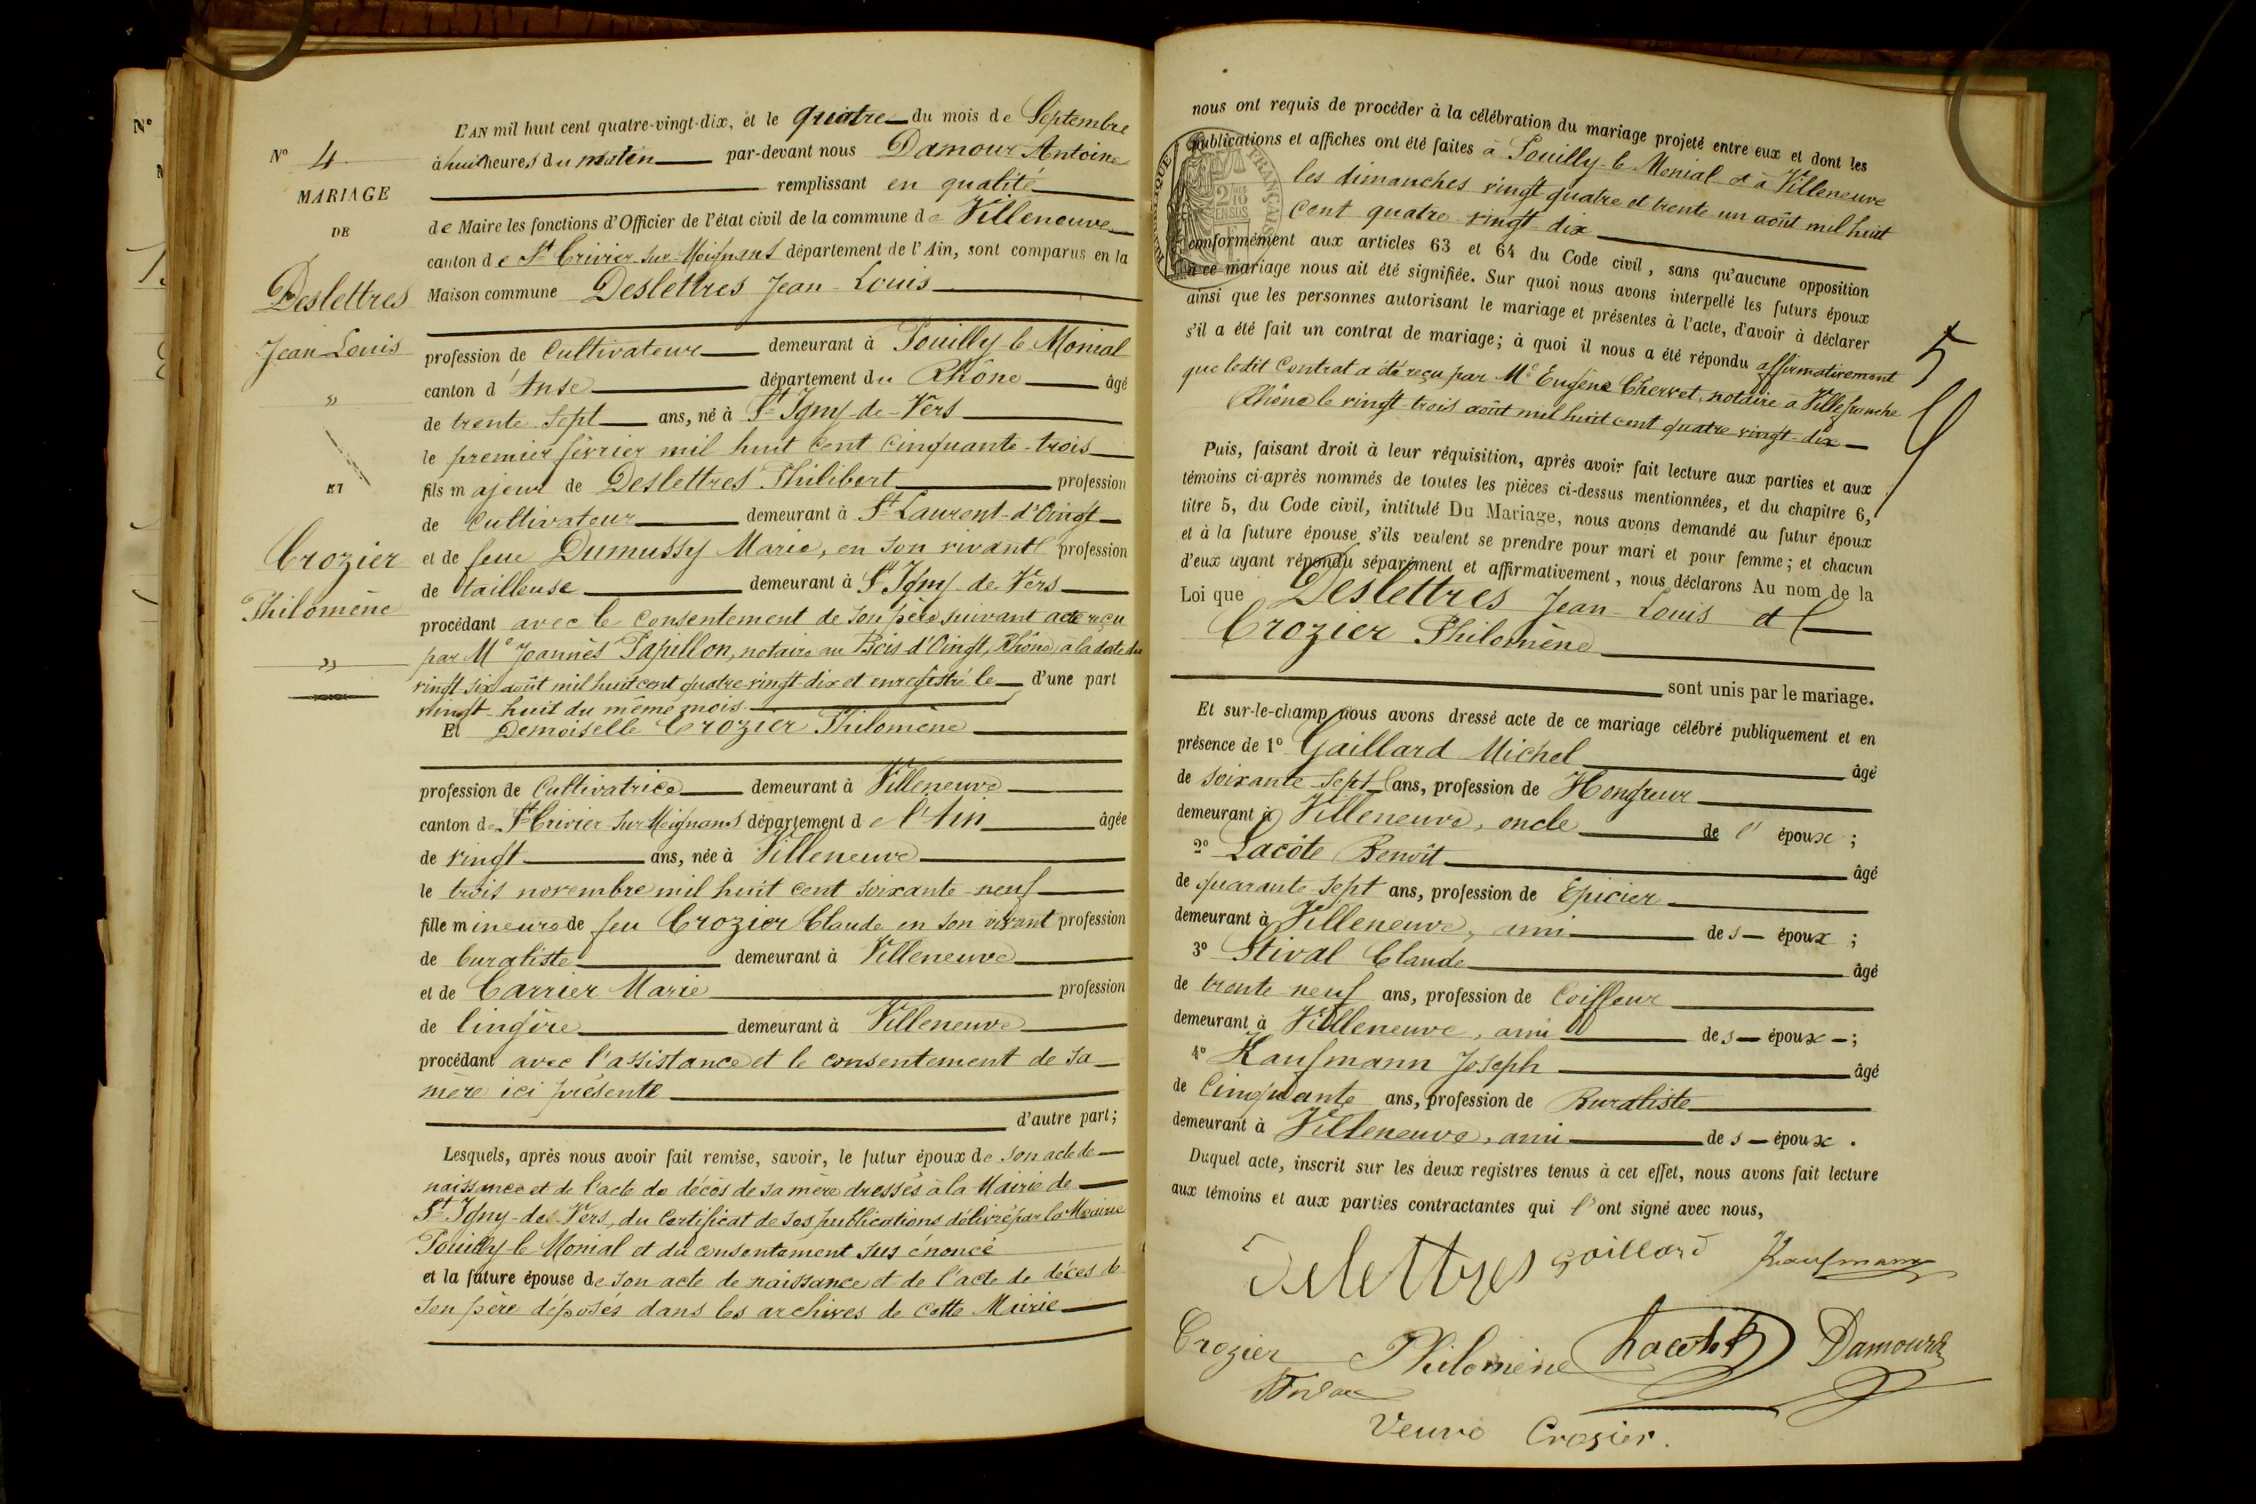 N°
N° 4
MARIAGE
DE
Deslettres
Jean Louis
"
ET
Crozier
Philomène
"
L'AN mil huit cent quatre-vingt-dix, et le quatre du mois de Septembre
à huit heures du matin par-devant nous Damour Antoine
remplissant en qualité
de Maire les fonctions d'Officier de l'état civil de la commune de Villeneuve
canton de St Trivier-sur-Moignans département de l'Ain, sont comparus en la
Maison commune Deslettres Jean-Louis
profession de Cultivateur demeurant à Pouilly le Monial
canton d'Anse département du Rhône âgé
de trente sept ans, né à St Igny-de-Vers
le premier février mil huit cent cinquante-trois
fils majeur de Deslettres Philibert profession
de Cultivateur demeurant à St Laurent-d'Oingt
et de feue Dumussy Marie, en son vivant profession
de tailleuse demeurant à St Igny-de-Vers
procédant avec le consentement de son père suivant acte reçu
par Me Joannès Papillon, notaire au Bois d'Oingt, Rhône, à la date du
vingt-six août mil huit cent quatre-vingt-dix et enregistré le d'une part
vingt-huit du même mois.
Et Demoiselle Crozier Philomène
profession de Cultivatrice demeurant à Villeneuve
canton de St Trivier-sur-Moignans département de l'Ain âgée
de vingt ans, née à Villeneuve
le trois novembre mil huit cent soixante-neuf
fille mineure de feu Crozier Claude en son vivant profession
de Buraliste demeurant à Villeneuve
et de Carrier Marie profession
de lingère demeurant à Villeneuve
procédant avec l'assistance et le consentement de sa
mère ici présente
d'autre part;
Lesquels, après nous avoir fait remise, savoir, le futur époux de son acte de
naissance et de l'acte de décès de sa mère dressés à la Mairie de
St Igny-des-Vers, du Certificat de ses publications délivré par la Mairie
Pouilly-le-Monial et du consentement sus énoncé
et la future épouse de son acte de naissance et de l'acte de décès de
son père déposés dans les archives de cette Mairie
nous ont requis de procéder à la célébration du mariage projeté entre eux et dont les
publications et affiches ont été faites à Pouilly-le-Monial et à Villeneuve
les dimanches vingt-quatre et trente-un août mil huit
cent quatre-vingt-dix
conformément aux articles 63 et 64 du Code civil, sans qu'aucune opposition
à ce mariage nous ait été signifiée. Sur quoi nous avons interpellé les futurs époux
ainsi que les personnes autorisant le mariage et présentes à l'acte, d'avoir à déclarer
s'il a été fait un contrat de mariage; à quoi il nous a été répondu affirmativement
que ledit Contrat a été reçu par Me Eugène Chervet, notaire à Villefranche
Rhône le vingt-trois août mil huit cent quatre-vingt-dix
Puis, faisant droit à leur réquisition, après avoir fait lecture aux parties et aux
témoins ci-après nommés de toutes les pièces ci-dessus mentionnées, et du chapitre 6,
titre 5, du Code civil, intitulé Du Mariage, nous avons demandé au futur époux
et à la future épouse s'ils veulent se prendre pour mari et pour femme; et chacun
d'eux ayant répondu séparément et affirmativement, nous déclarons Au nom de la
Loi que Deslettres Jean-Louis et
Crozier Philomène
sont unis par le mariage.
Et sur-le-champ nous avons dressé acte de ce mariage célébré publiquement et en
présence de 1° Gaillard Michel âgé
de soixante-sept ans, profession de Hongreur
demeurant à Villeneuve, oncle de l'époux;
2° Lacôte Benoît âgé
de quarante-sept ans, profession de Epicier
demeurant à Villeneuve, ami des époux;
3° Stival Claude âgé
de trente neuf ans, profession de Coiffeur
demeurant à Villeneuve, ami des époux;
4° Kaufmann Joseph âgé
de Cinquante ans, profession de Buraliste
demeurant à Villeneuve, ami des époux.
Duquel acte, inscrit sur les deux registres tenus à cet effet, nous avons fait lecture
aux témoins et aux parties contractantes qui l'ont signé avec nous,
Delettres gaillard Kaufmann
Crozier Philomène Lacôte B Damour
Veuve Crozier.